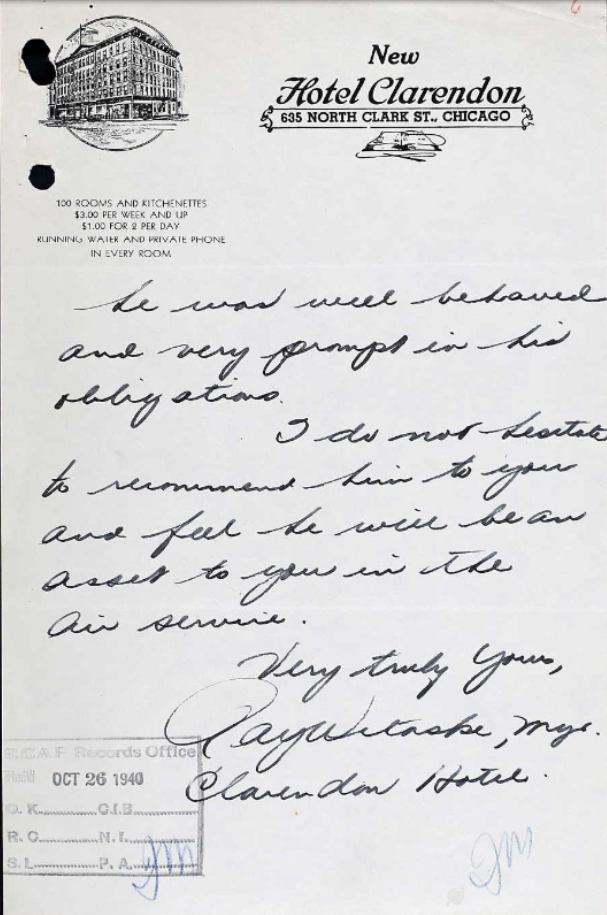 6
New
Hotel Clarendon
635 NORTH CLARK ST., CHICAGO
100 ROOMS AND KITCHENETTES
$3.00 PER WEEK AND UP
$1.00 FOR 2 PER DAY
RUNNING WATER AND PRIVATE PHONE
IN EVERY ROOM
he was well behaved
and very prompt in his
obligations.
I do not hesitate
to recommend him to you
and feel he will be an
asset to you in the
Air service.
Very truly yours,
Ray, Mgr.
Clarendon Hotel.
R.C.A.F Records Office
OCT 26 1940
O.K.............C.I.B.............
R.C.............N.I.............
S.L.............P.A.............